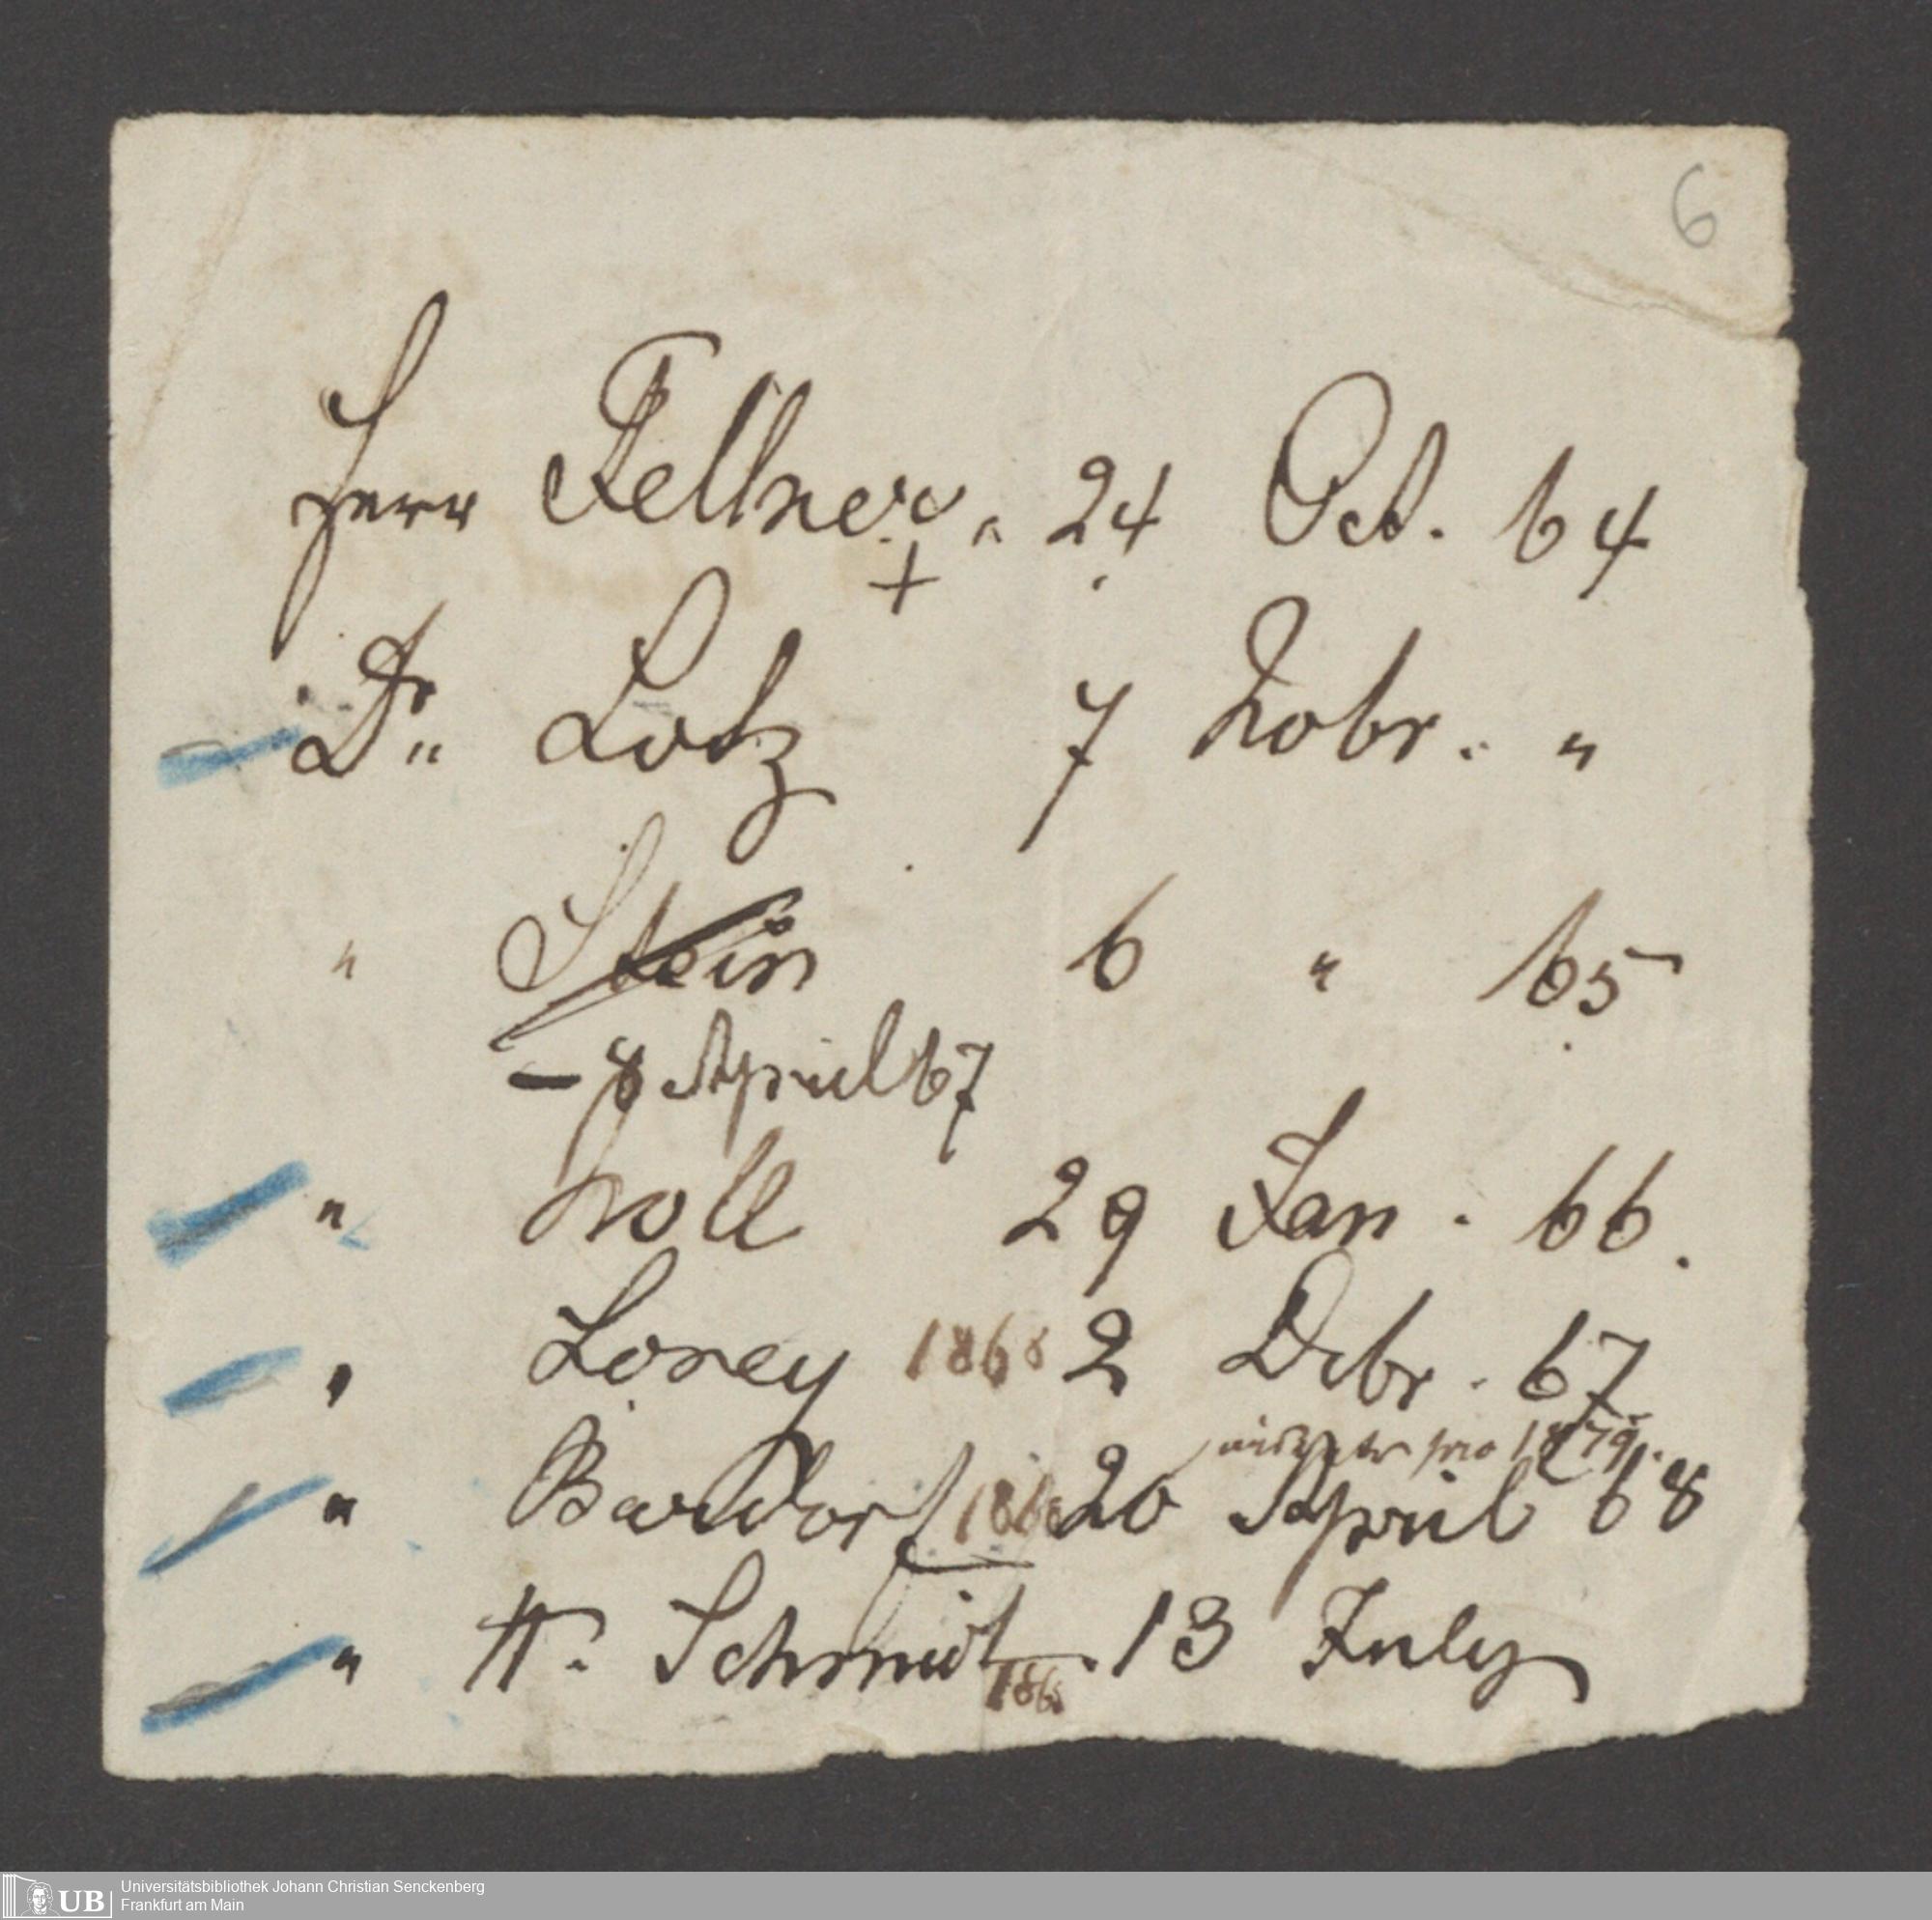 6
Herr Fellner. 24 Oct. 64
+
Dr. Lotz 7 Nobr. "
" Stein 6 " 65
– 8 April 67
" Noll 29 Jan. 66.
" Lorey 1868 2 Dcbr. 67
1879.
" Bardorf 1868 20 April 68
" H. Schmidt. 13 July
1868
UB Universitätsbibliothek Johann Christian Senckenberg
Frankfurt am Main